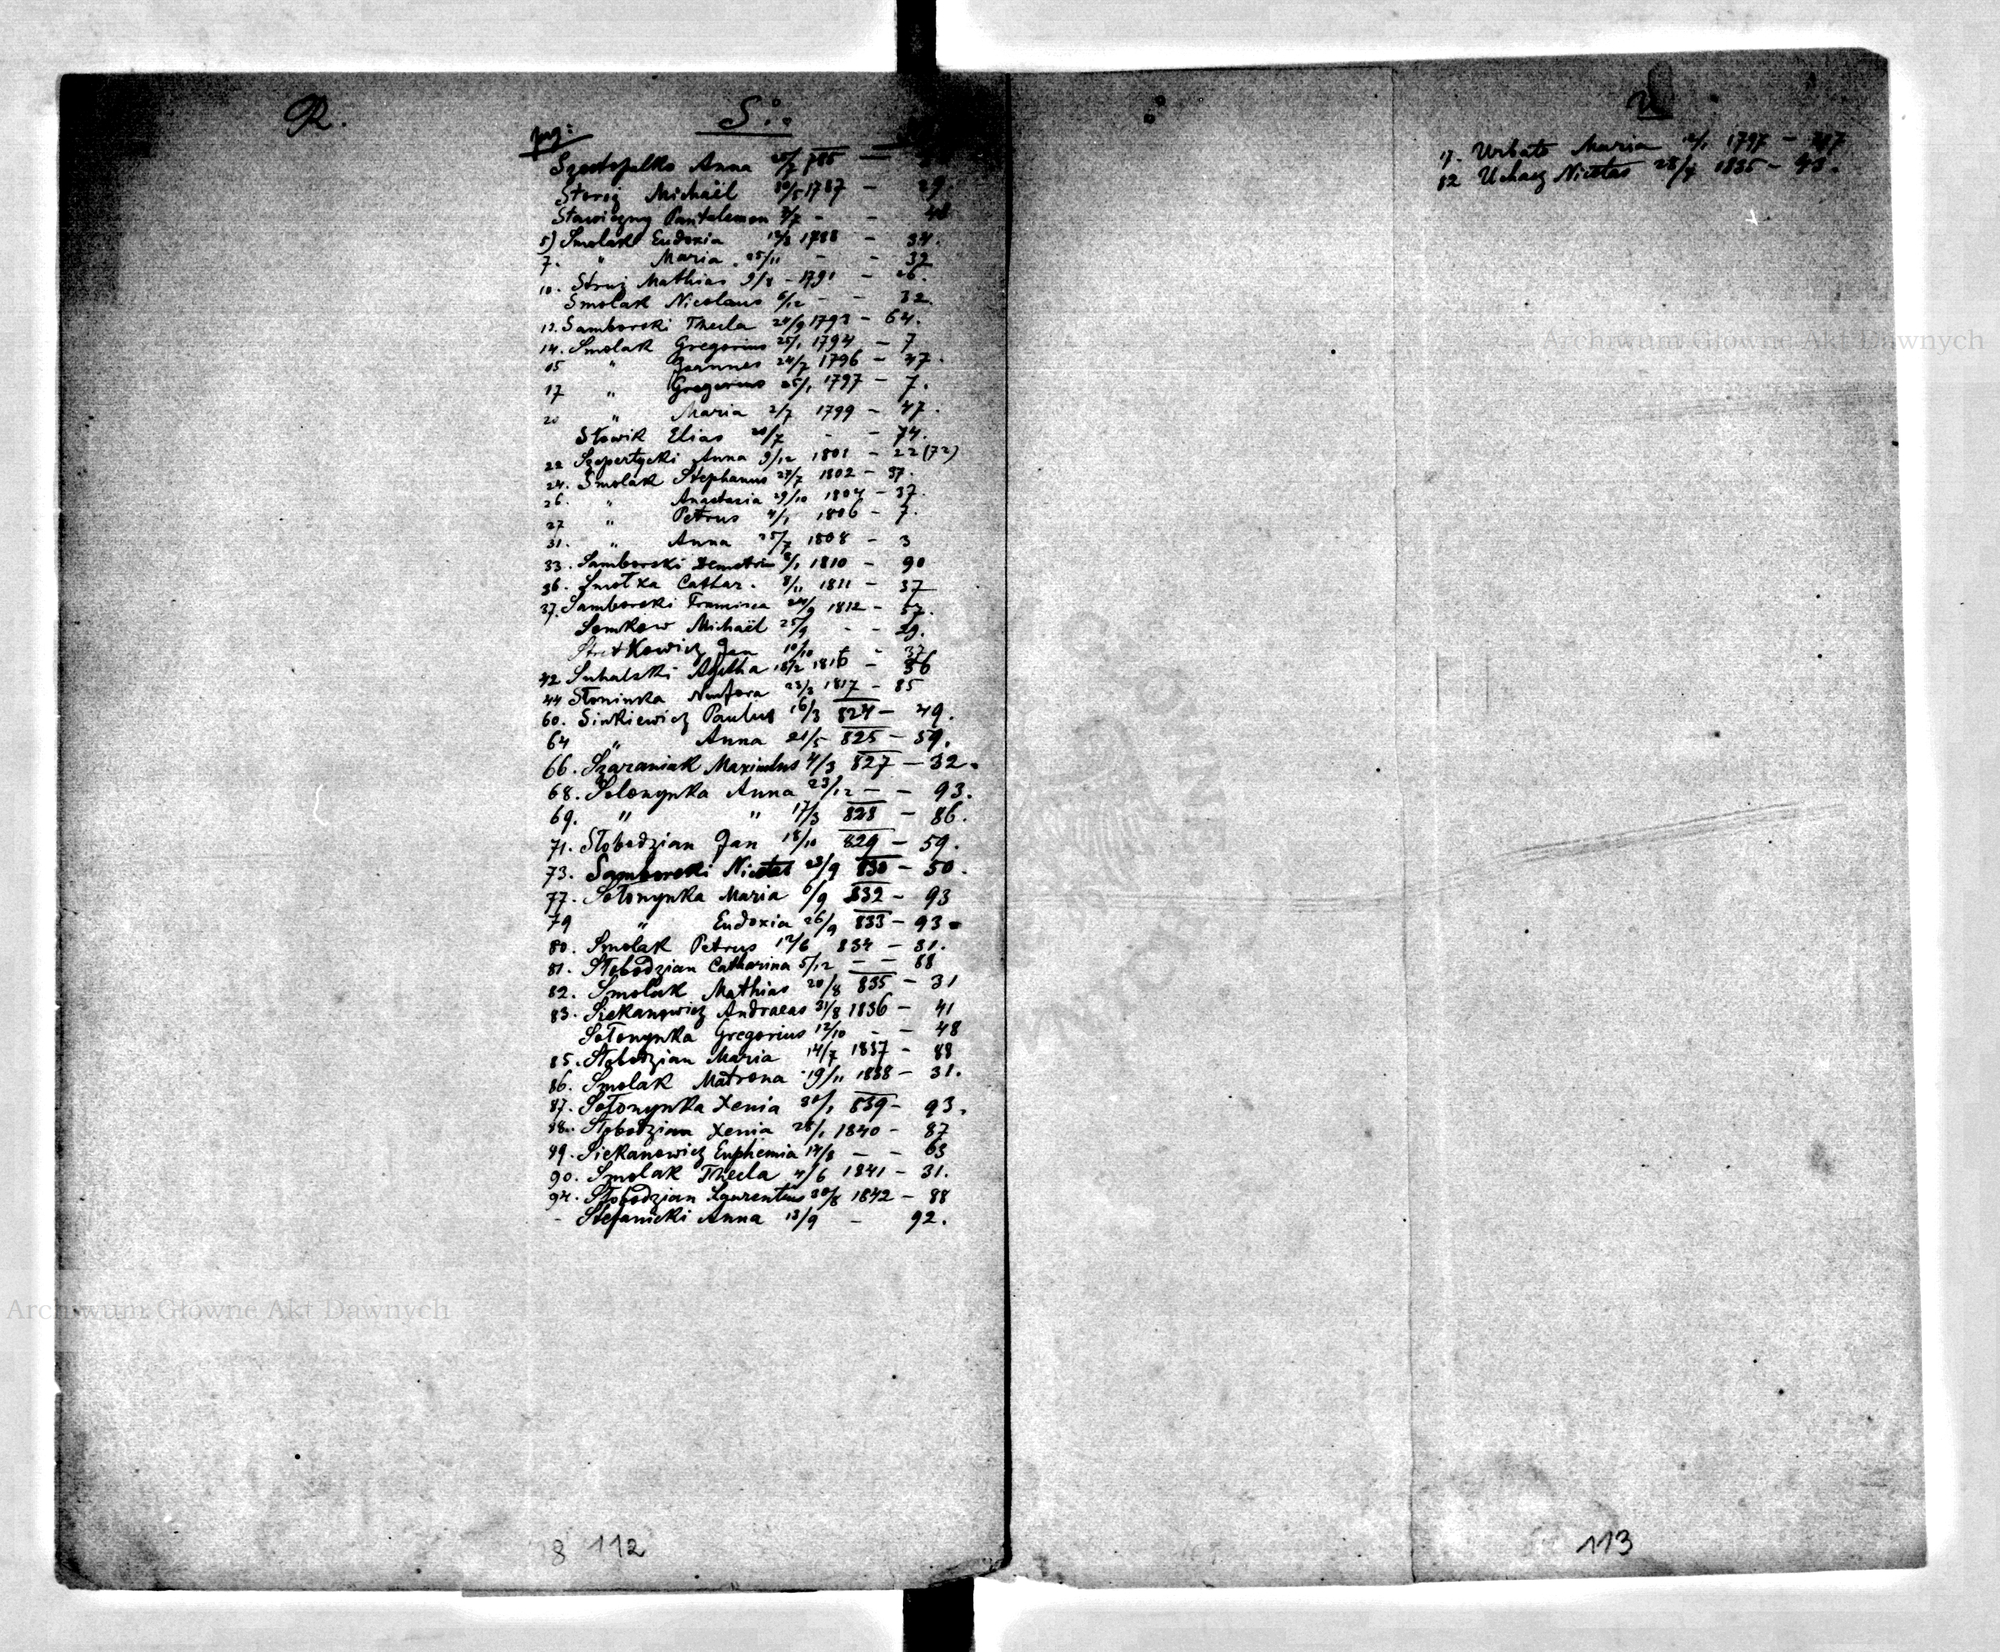 R.
S.
pag:
Szestopalko Anna 785 —
Storoż Michaël 30/5 1787 — 29.
Stawiczny Pantalemon — — 48
5) Smolak Eudoxia 12/8 1788 — 34.
7. " Maria 25/11 — — 32
10. Struż Mathias 9/8 — 1791 — 26.
Smolak Nicolaus 6/12 — — 32.
12. Samborski Thecla 24/9 1793 — 64.
14. Smolak Gregorius 25/1 1794 — 7
15 " Joannes 24/7 1796 — 47.
17 " Gregorius 25/1 1797 — 7.
20 " Maria 2/7 1799 — 47.
Słowik Elias 20/7 — — 74.
22 Szepertycki Anna 9/12 1801 — 22 (72)
24. Smolak Stephanus 27/7 1802 — 37.
26. " Anastasia 29/10 1804 — 37.
27 " Petrus 4/1 1806 — 7.
31. " Anna 25/7 1808 — 3
33. Samborski Demetri 8/1 1810 — 90
36. Smolka Cathar. 8/11 1811 — 37
37. Samborski Francisca 24/9 1812 — 57.
Semkow Michaël 25/9 — — 29.
Jan 10/10 — 37
42 Suhalski Agatha 18/2 1816 — 36
44 Słoninka 23/3 1817 — 85
60. Sinkiewicz Paulus 16/3 824 — 49.
64 " Anna 21/5 825 — 59.
66. Szaraniak Maximilus 4/3 827 — 32.
68. Solonynka Anna 23/12 — — 93.
69. " " 17/3 828 — 86.
71. Słobodzian Jan 18/10 829 — 59.
73. Samborski Nicetas 23/9 830 — 50.
77. Sołonynka Maria 6/9 832 — 93
79 " Eudoxia 26/9 833 — 93
80. Smolak Petrus 12/6 834 — 31.
81. Słobodzian Catharina 5/12 — — 88
82. Smolak Mathias 20/8 835 — 31
83. Siekanowicz Andraeas 31/8 1836 — 41
Sołonynka Gregorius 12/10 — — 48
85. Słobodzian Maria 14/7 1837 — 88
86. Smolak Matrona 19/11 1838 — 31.
87. Sołonynka Xenia 30/1 839 — 93.
88. Słobodzian Xenia 28/1 1840 — 87
89. Siekanowicz Euphemia 14/8 — — 63
90. Smolak Thecla 4/6 1841 — 31.
94. Słobodzian Laurentius 30/8 1842 — 88
- Stefanicki Anna 13/9 — 92.
8 112
U
17. Urbato Maria 12/1 1797 —
82 Uchacz Nicetas 28/4 1835 — 43.
113
Archiwum Główne Akt Dawnych
Archiwum Główne Akt Dawnych